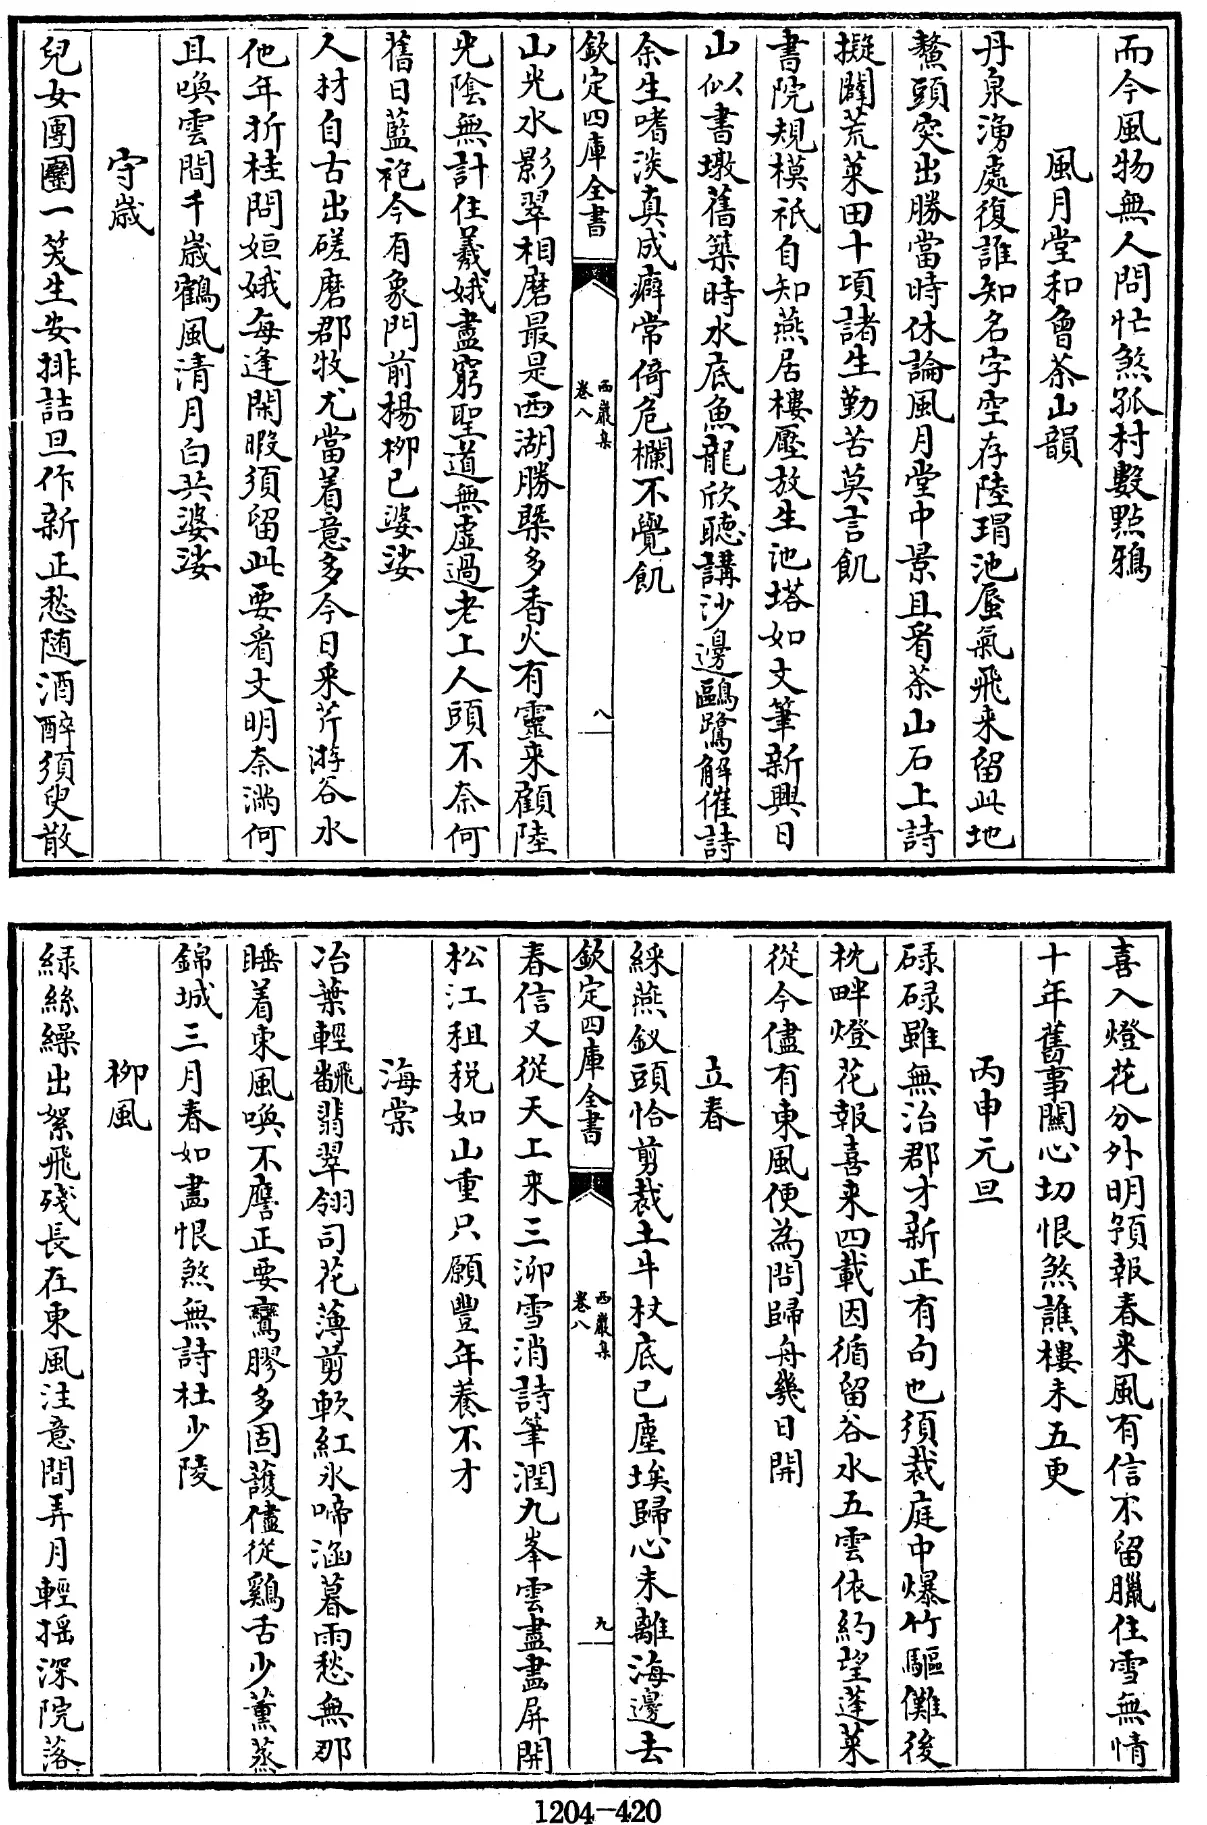 而今風物無人問忙煞孤村數點鴉
風月堂和會茶山韻
丹泉湧處復誰知名字空存陸瑁池蜃氣飛来留此地
鰲頭突出勝當時休論風月堂中景且看茶山石上詩
擬闢荒萊田十頃諸生勤苦莫言飢
書院規模祇自知燕居樓壓放生池塔如文筆新興日
山似書墩舊築時水底魚龍欣聽講沙邊鷗鷺解催詩
余生嗜淡真成癖常倚危欄不覺飢
欽定四庫全書
西巖集
卷八
八
山光水影翠相磨最是西湖勝槩多香火有靈来顧陸
光陰無計住羲娥盡窮聖道無虚過老上人頭不奈何
舊日藍袍今有象門前楊柳已婆娑
人材自古出磋磨郡牧尤當着意多今日来芹游谷水
他年折桂問姮娥每逢閑暇須留此要看文明奈滿何
且喚雲間千歲鶴風清月白共婆娑
守歲
兒女團圞一笑生安排詰旦作新正愁随酒醉須臾散
喜入燈花分外明預報春来風有信不留臘住雪無情
十年舊事關心切恨煞譙樓未五更
丙申元旦
碌碌雖無治郡才新正有句也須裁庭中爆竹驅儺後
枕畔燈花報喜来四載因循留谷水五雲依約望蓬萊
從今儘有東風便為問歸舟幾日開
立春
綵燕釵頭恰剪裁土牛杖底已塵埃歸心未離海邊去
欽定四庫全書
西巖集
卷八
九
春信又從天上来三泖雪消詩筆潤九峯雲盡畫屏開
松江租税如山重只願豐年養不才
海棠
冶葉輕翻翡翠翎司花薄剪軟紅氷啼涵暮雨愁無那
睡着東風喚不譍正要鸞膠多固護儘從鷄舌少薰蒸
錦城三月春如畫恨煞無詩杜少陵
柳風
緑絲繰出絮飛殘長在東風注意間弄月輕揺深院落
1204-420